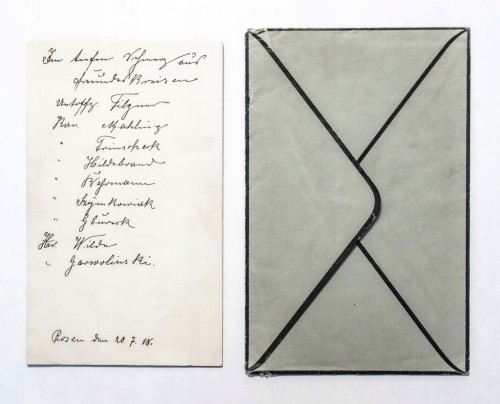 Im tiefen Schmerz aus
Freundes Kreisen
Untroffz. Filzner
Kan. Mahling
" Trinscheck
" Hildebrand
" Wehrmann
" Szymkowiak
" Gburek
Hr. Wilde
" Garwolinski.
Posen den 20.7.18.